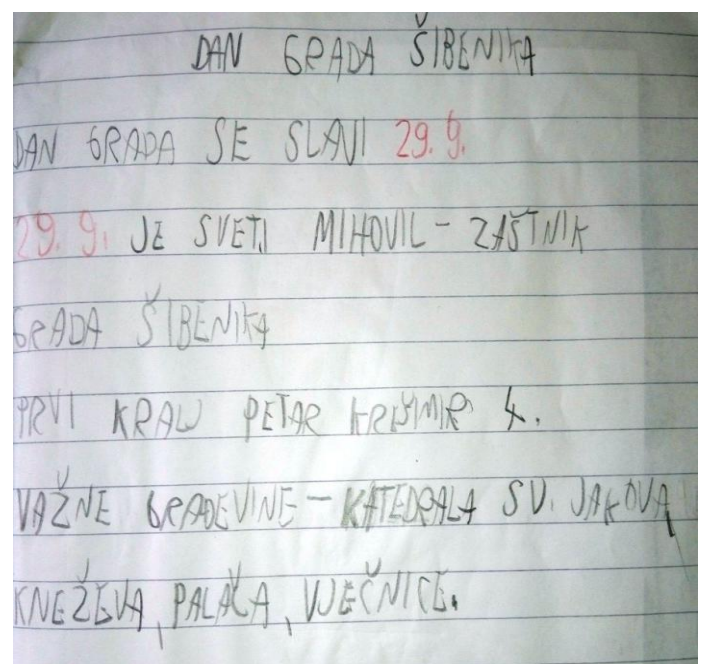 DAN GRADA ŠIBENIKA
DAN GRADA SE SLAVI 29. 9.
29. 9. JE SVETI MIHOVIL - ZAŠTNIK
GRADA ŠIBENIKA
PRVI KRALJ PETAR KREŠIMIR 4.
VAŽNE GRAĐEVINE - KATEDRALA SV. JAKOVA,
KNEŽEVA, PALAČA, VJEČNICE.